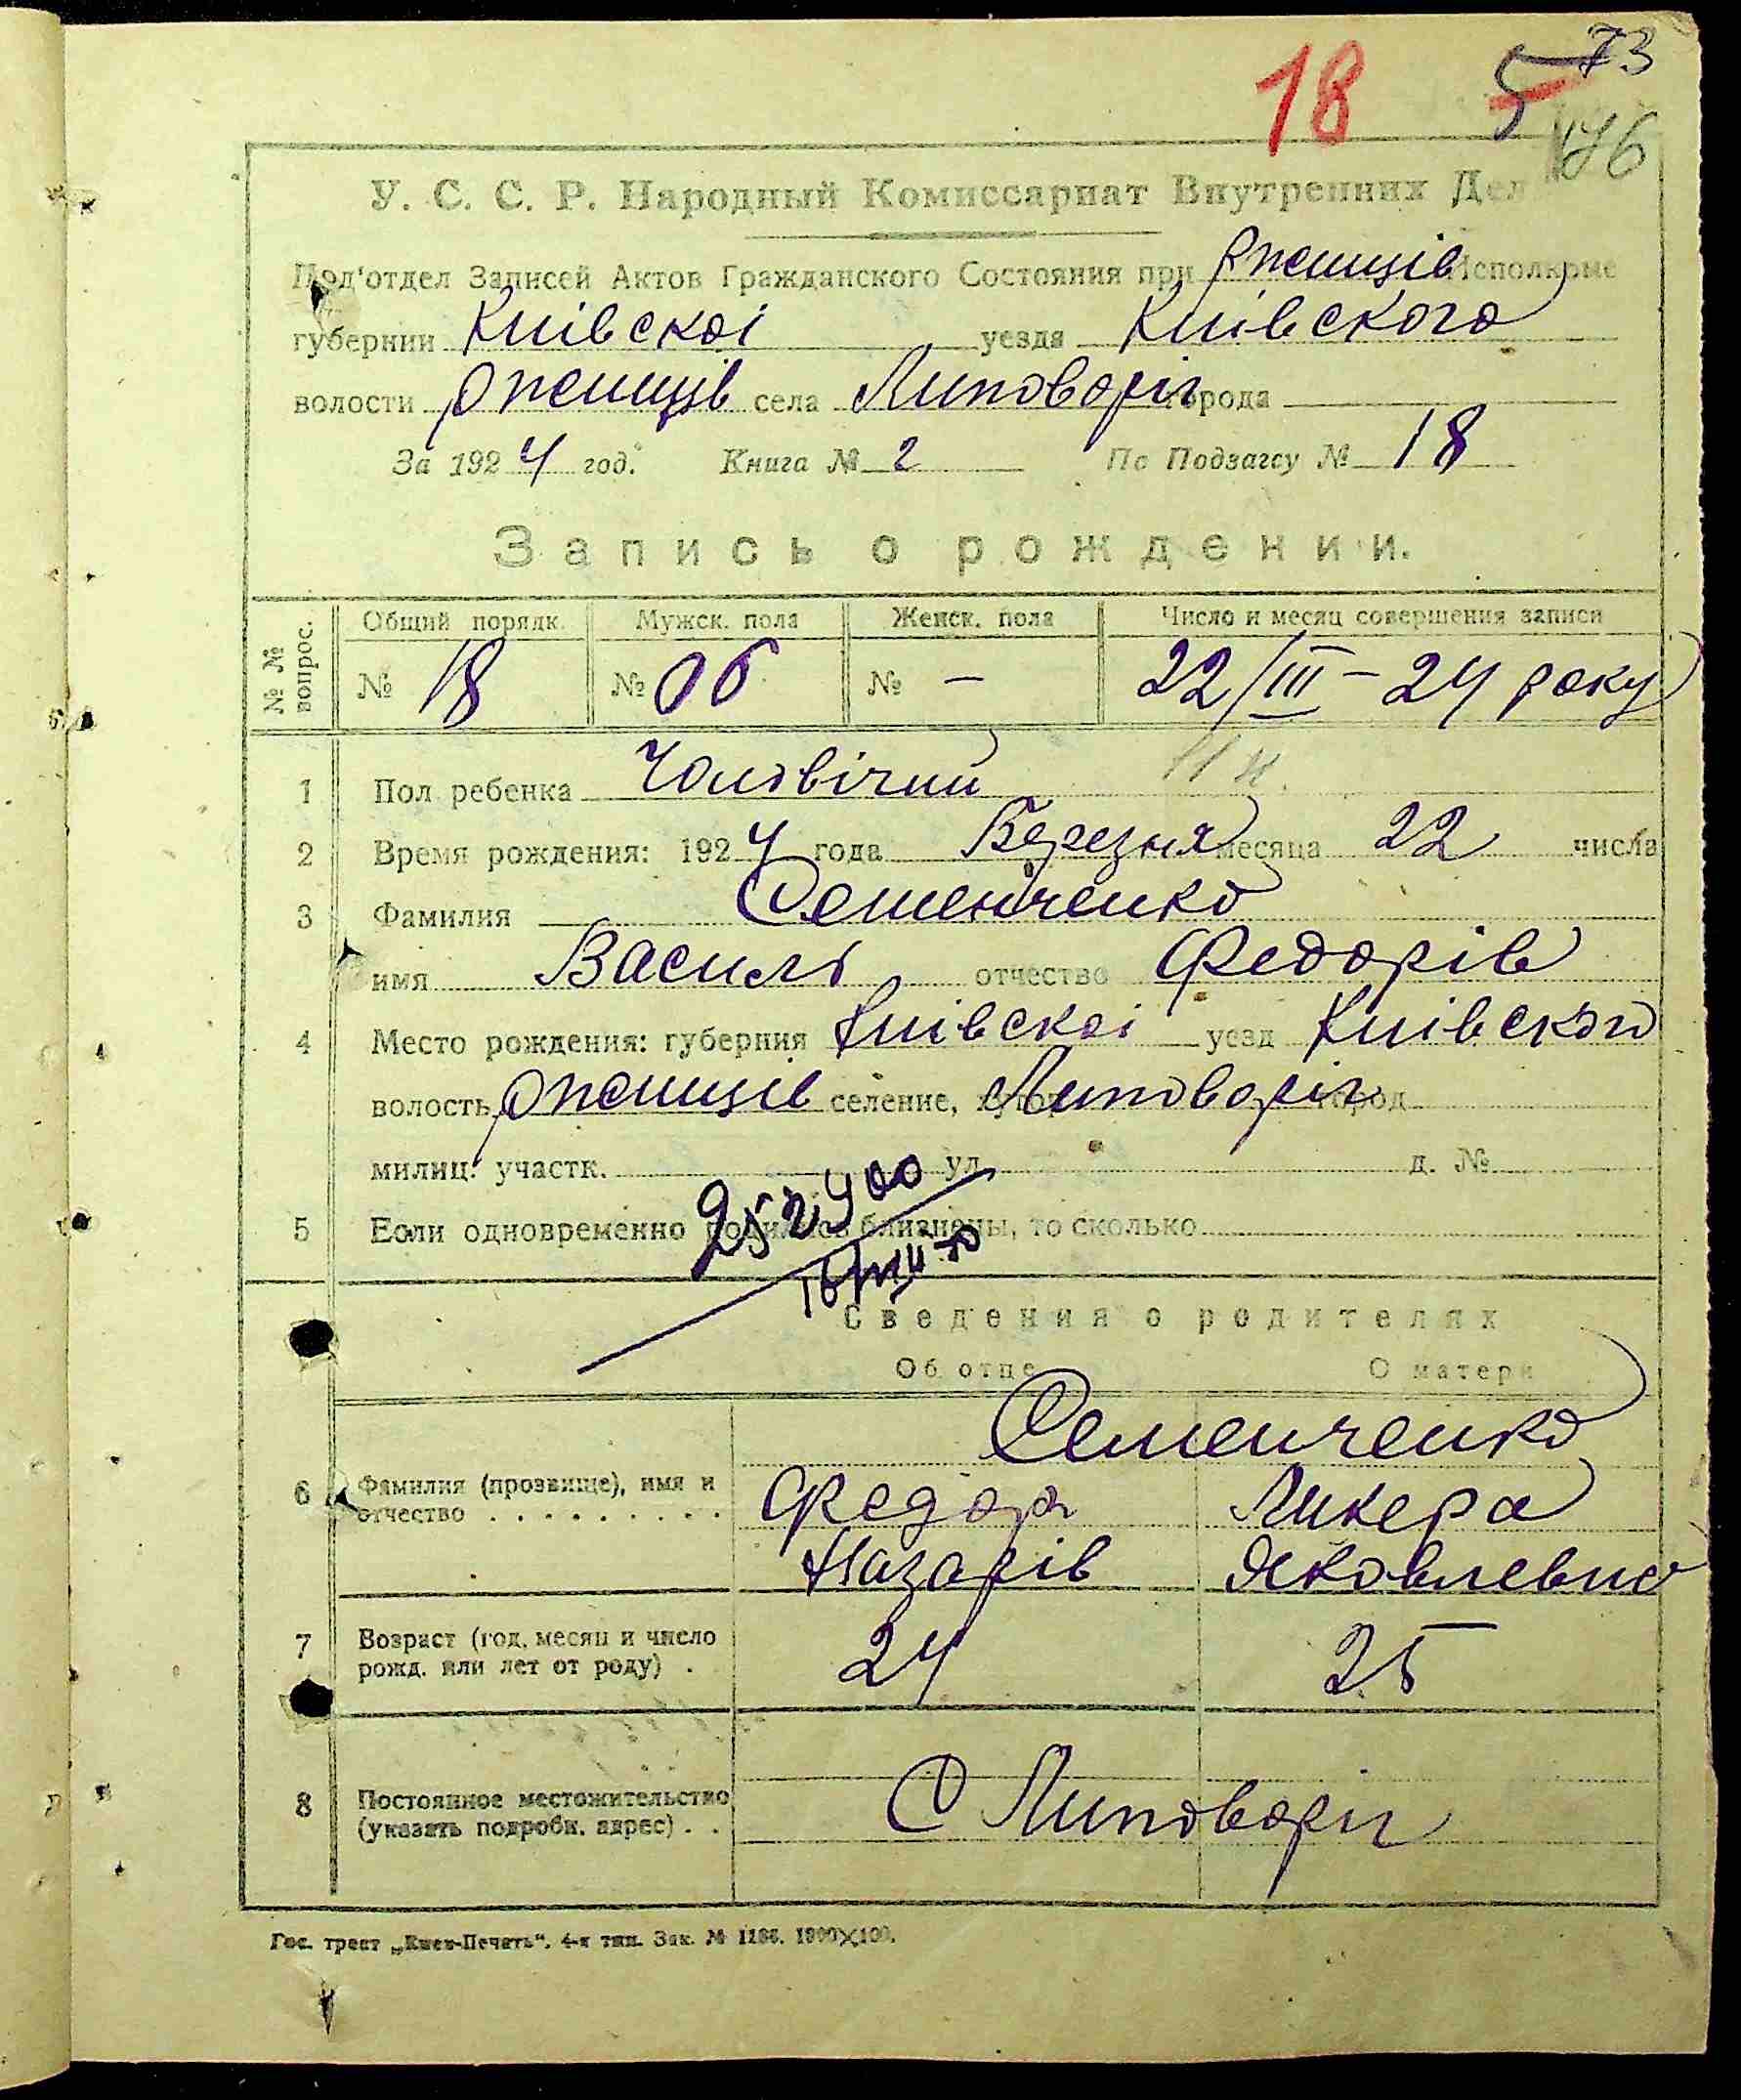 18 5 73
176
У. С. С. Р. Народный Комиссариат Внутренних Дел
Под'отдел Записей Актов Гражданского Состояния при Ржищів Исполкоме
губернии Київскоі уезда Київского
волости Ржищів села Липоворіг города
За 1924 год. Книга № 2 По Подзагсу № 18
Запись о рождении.
№ № вопрос. Общий порядк. Мужск. пола Женск. пола Число и месяц совершения записи
№ 18 № 06 № — 22/III – 24 року
1 Пол ребенка Чоловічий
2 Время рождения: 1924 года Березня месяца 22 числа
3 Фамилия Семенченко
имя Василь отчество Федорів
4 Место рождения: губерния Київскоі уезд Київского
волость Ржищів селение, Липоворіг город
милиц. участк. ул. д. №
5 Если одновременно родились близнецы, то сколько
252400
Сведения о родителях
Об отце О матери
Семенченко
6 Фамилия (прозвище), имя и отчество . . . . . . . . . . Федор Ликера
Назарів Яковлевна
7 Возраст (год, месяц и число 24 25
рожд. или лет от роду) .
8 Постоянное местожительство С Липоворіг
(указать подробн. адрес) . .
Гос. трест „Киев-Печать“. 4-я тип. Зак. № 1186. 1000×100.